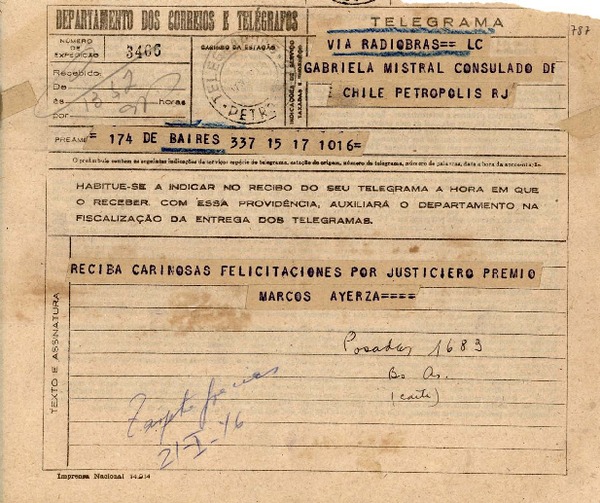 787
DEPARTAMENTO DOS CORREIOS E TELÉGRAFOS
TELEGRAMA
NÚMERO DE EXPEDIÇÃO
3466
CARIMBO DA ESTAÇÃO
INDICAÇÕES DE SERVIÇO TAXADAS E ENDEREÇO
VIA RADIOBRAS== LC
GABRIELA MISTRAL CONSULADO DE
CHILE PETROPOLIS RJ
Recebido:
De
às horas
por
PREAM
= 174 DE BAIRES 337 15 17 1016=
O preâmbulo contém as seguintes indicações de serviço: espécie do telegrama, estação de origem, número do telegrama, número de palavras, data e hora da apresentação.
HABITUE-SE A INDICAR NO RECIBO DO SEU TELEGRAMA A HORA EM QUE
O RECEBER. COM ESSA PROVIDÊNCIA, AUXILIARÁ O DEPARTAMENTO NA
FISCALIZAÇÃO DA ENTREGA DOS TELEGRAMAS.
TEXTO E ASSINATURA
RECIBA CARINOSAS FELICITACIONES POR JUSTICIERO PREMIO
MARCOS AYERZA====
Posadas 1683
Bs As.
(carta)
21-I-46
Imprensa Nacional 14.914